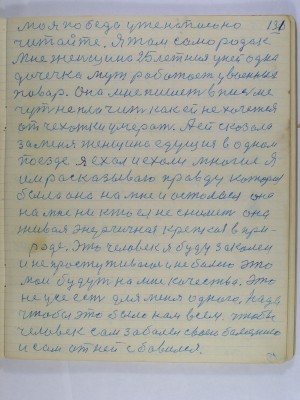 131
моя победа у женсписьмо
читайте. Я там самородак
мне женщина 25 летния у ней одна
дочечка муж работает у военных
повар. Она мне пишет в письме
чут не плачит как ей не хочется
от чехотки умерат. А ей сказала
за меня женщина едущия в одном
поезде я ехал и ехали многие я
им расказываю правду которая
была она на мне и осталася она
на мне ни кто ее не снимет она
живая энергичная крепкоя в при-
роде. Это человек я буду закален
и не простуживаюся и не болею это
мои будут на мне качества. Это
не усе ест для меня одного, надо
чтобы это было нам всем. чтобы
человек сам забалел своею болезнию
и сам от ней сбавился.